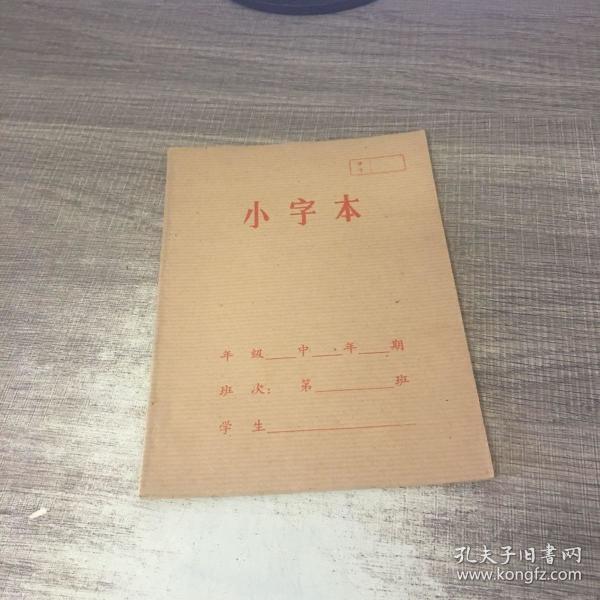 小字本
年 级___中___年___期
班 次： 第_________班
学 生_______________
孔夫子旧书网
www.kongfz.com